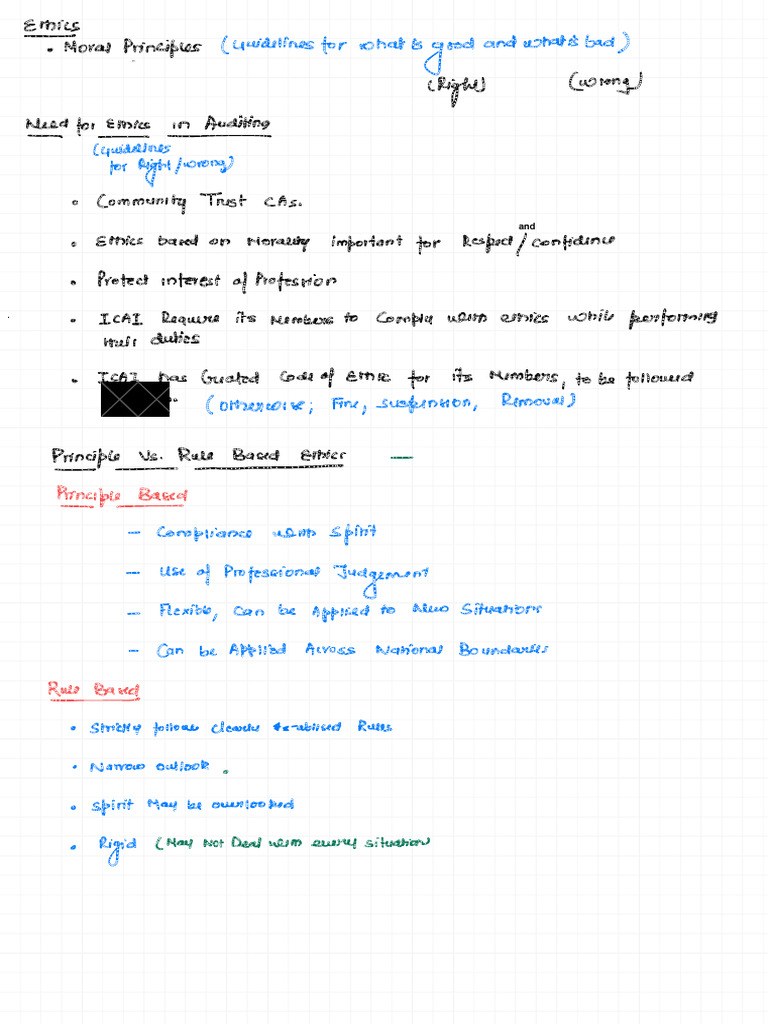 Ethics
• Moral Principles (Guidelines for what is good and what is bad)
(Right) (Wrong)
Need for Ethics in Auditing
(Guidelines
for Right/Wrong)
• Community Trust CAs.
• Ethics based on Morality important for Respect/and Confidence
• Protect interest of Profession
• ICAI Require its Members to Comply with ethics while performing
their duties
• ICAI has Created Code of Ethic for its Members, to be followed
(Otherwise; Fine, Suspension, Removal)
Principle Vs. Rule Based Ethics —
Principle Based
— Compliance with Spirit
— Use of Professional Judgement
— Flexible, Can be Applied to New Situations
— Can be Applied Across National Boundaries
Rule Based
• Strictly follow Clearly Rules
• Narrow outlook .
• Spirit May be overlooked
• Rigid (May Not Deal with every situation